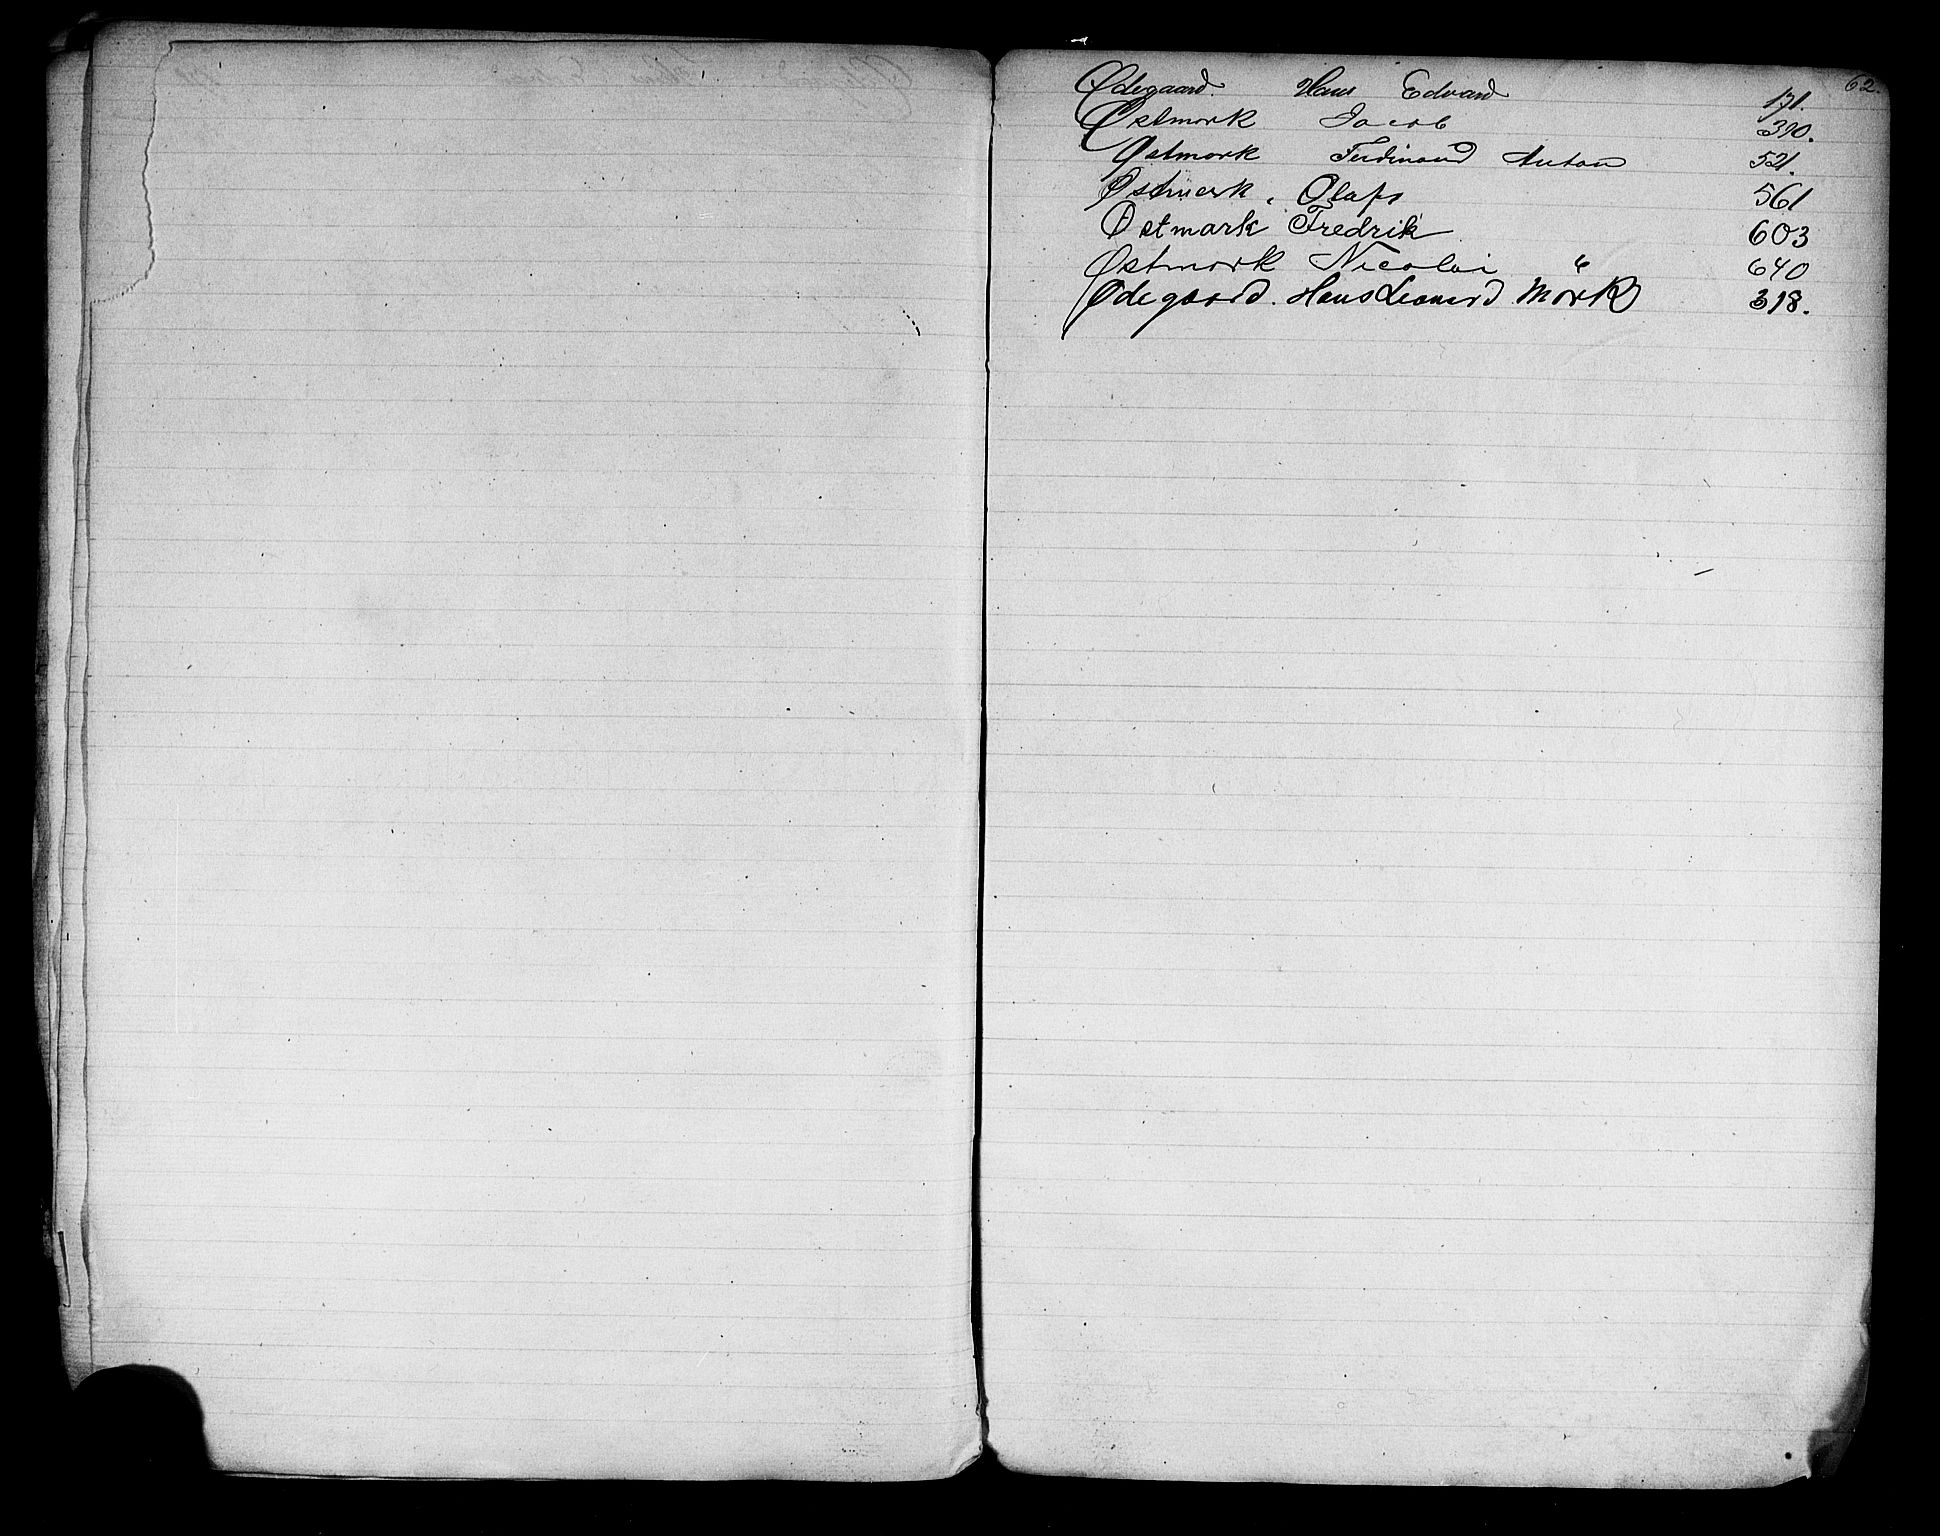 62.
Ødegaard. Hans Edvard 171.
Østmork Jacob 390.
Østmork Ferdinand Anton 521.
Østmork, Olaf 561
Østmark Fredrik 603
Østmork Nicolai 640
Ødegaard. Hans Leonard Mørk 318.